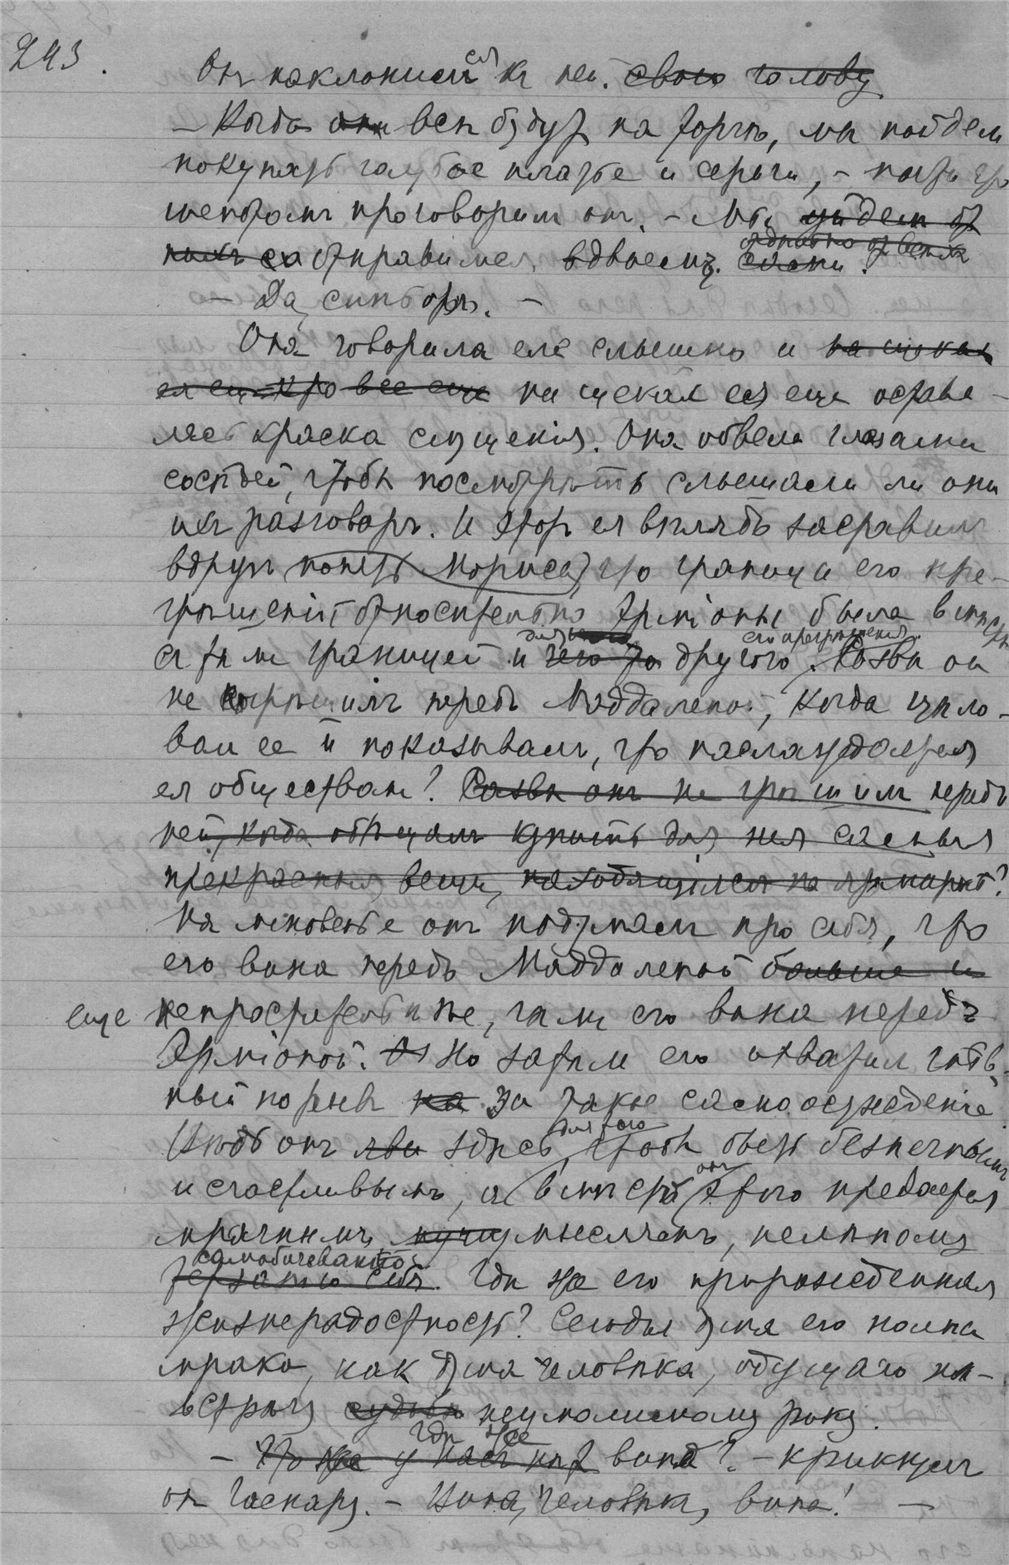 243.
Он наклонился к ней. свою голову
— Когда они все будут на торгъ, мы пойдем
покупать голубое платье и серьги, —
шепотомъ проговорил он. — Мы уйдем от
них са отправимся вдвоемъ.
— Да, синьоръ. —
Она говорила еле слышно и на щеках
ея еще все еще на щеках ея еще остава-
лась краска смущенія. Она обвела глазами
сосѣдей, чтобы посмотрѣть слышали ли они
их разговоръ. И этот ея взгляд заставил
вдруг понять Мориса, что граница его пре-
грѣшеній относительно Эрміоны была вмѣстѣ
с тѣм границей и для другого его прегрѣшенія. Развѣ он
не согрѣшил передъ Маддаленой, когда цѣло-
вал ее и показывал, что наслаждается
ея обществом? Развѣ он не грѣшил передъ
ней, когда обѣщал купить для нея самыя
прекрасныя вещи, находящіяся на ярмаркѣ?
На мгновенье он подумал про себя, что
его вина передъ Маддаленой больше и
еще непростительнѣе, чѣм его вина передъ
Эрміоной. Но затѣм его охватил гнѣв-
ный порыв на за такое самоосужденіе.
Чтоб он здѣсь для того чтобы быть безпечным
и счастливым, а вмѣсто этого он предается
мрачным мыслям, нелѣпому
самобичеванію терзанію себя. Гдѣ же его прирожденная
жизнерадостность? Сегодня душа его полна
мрака, как душа человѣка, идущаго на-
встрѣчу судьбѣ неумолимому року.
— Что же у нас нѣт Гдѣ же вина? — крикнул
он Гаспару. — Вина, человѣкъ, вина! —